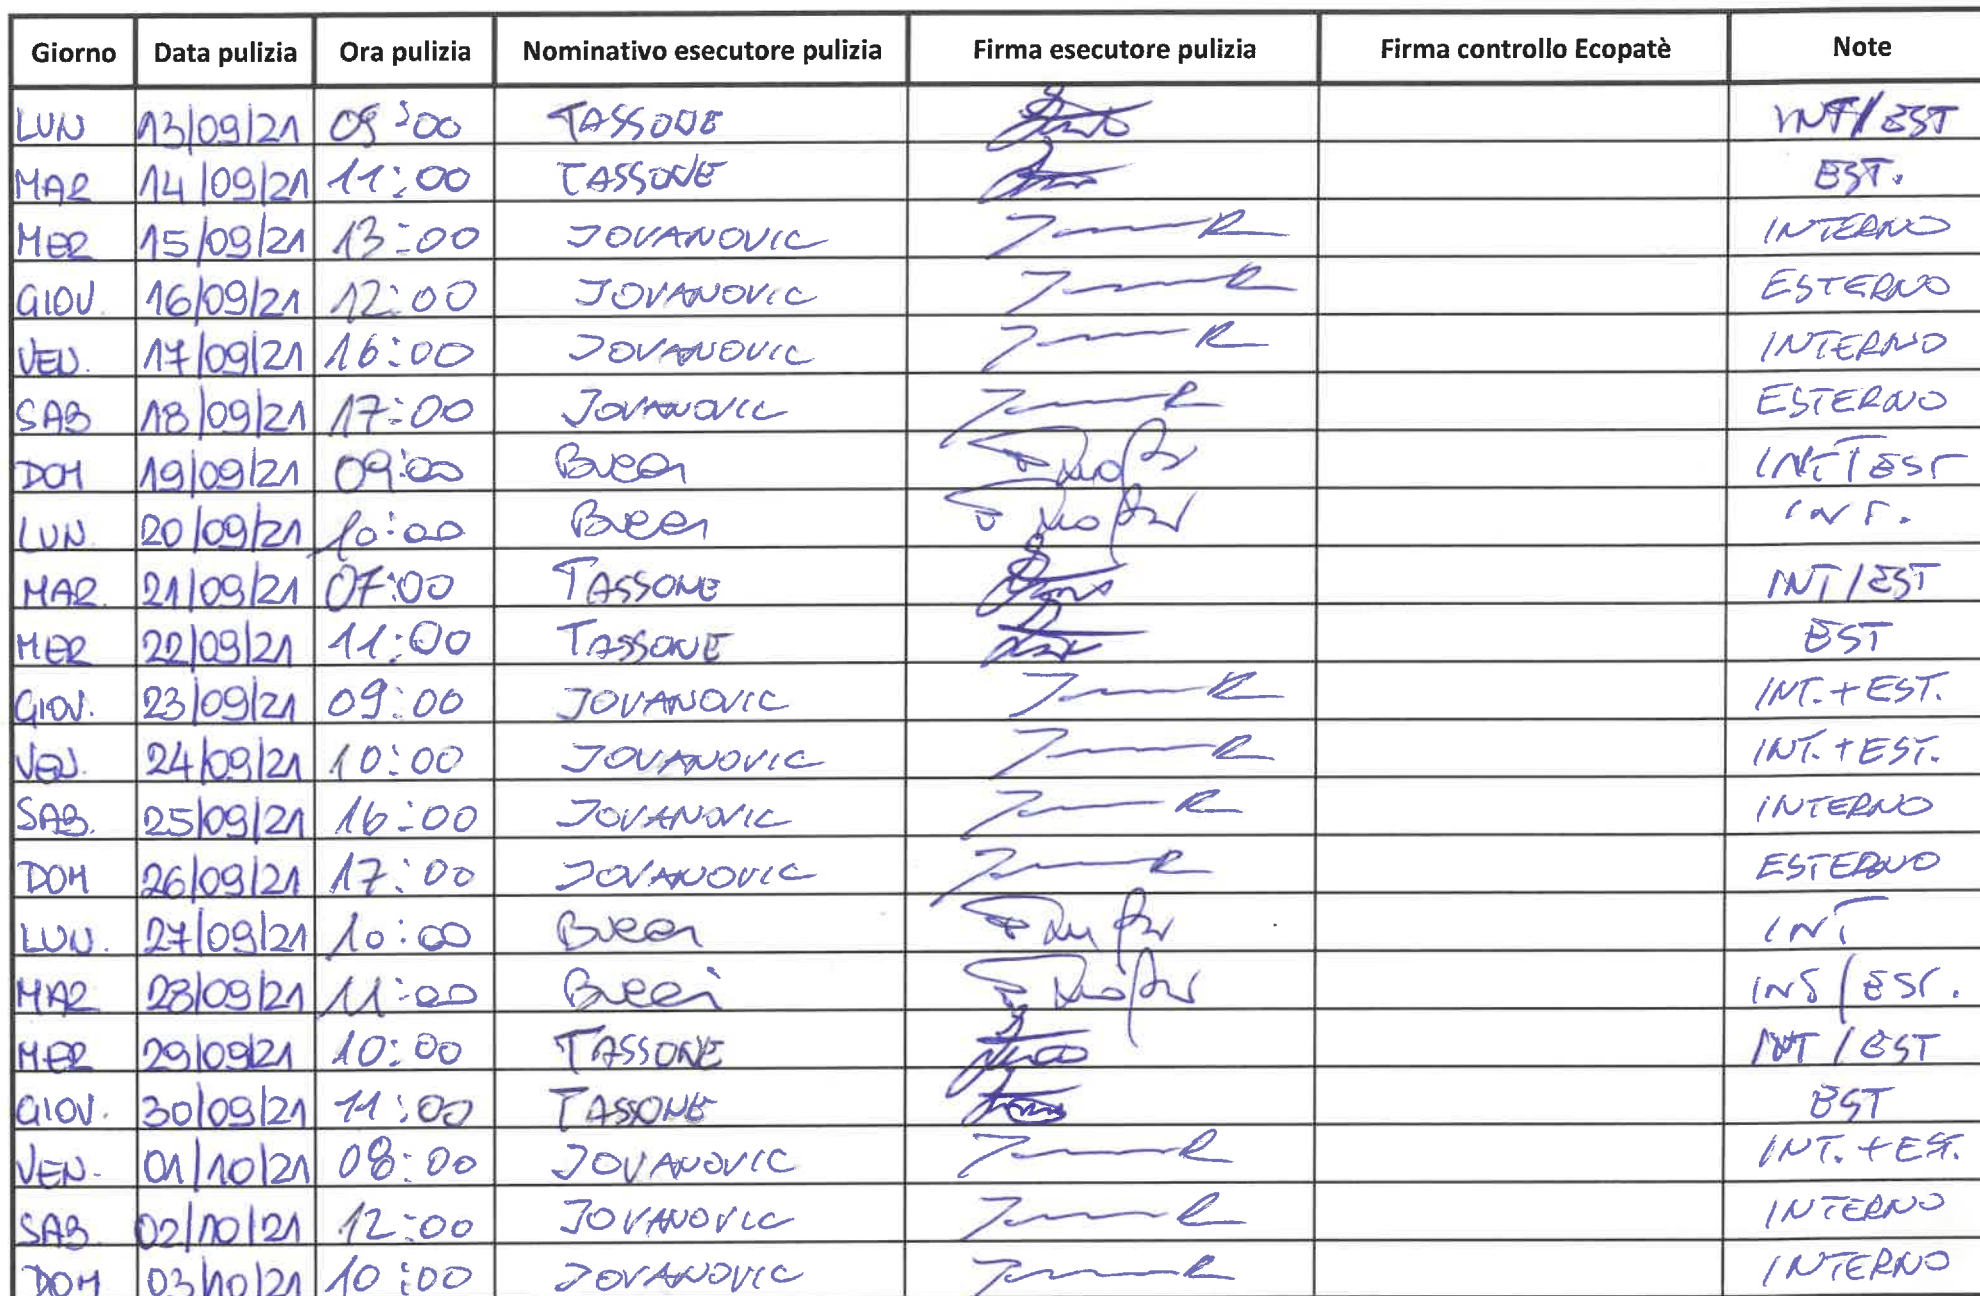 Giorno Data pulizia Ora pulizia Nominativo esecutore pulizia Firma esecutore pulizia Firma controllo Ecopatè Note
LUN 13/09/21 09:00 TASSONE INT/EST
MAR 14/09/21 11:00 TASSONE EST.
MER 15/09/21 13:00 JOVANOVIC INTERNO
GIOV. 16/09/21 12:00 JOVANOVIC ESTERNO
VEN. 17/09/21 16:00 JOVANOVIC INTERNO
SAB 18/09/21 17:00 JOVANOVIC ESTERNO
DOM 19/09/21 09:00 Bucci INT/EST
LUN. 20/09/21 10:00 Bucci INT.
MAR. 21/09/21 07:00 TASSONE INT/EST
MER 22/09/21 11:00 TASSONE EST
GIOV. 23/09/21 09:00 JOVANOVIC INT.+EST.
VEN. 24/09/21 10:00 JOVANOVIC INT.+EST.
SAB. 25/09/21 16:00 JOVANOVIC INTERNO
DOM 26/09/21 17:00 JOVANOVIC ESTERNO
LUN. 27/09/21 10:00 Bucci INT
MAR 28/09/21 11:00 Bucci INT/EST.
MER 29/09/21 10:00 TASSONE INT/EST
GIOV. 30/09/21 11:00 TASSONE EST
VEN. 01/10/21 08:00 JOVANOVIC INT.+EST.
SAB 02/10/21 12:00 JOVANOVIC INTERNO
DOM 03/10/21 10:00 JOVANOVIC INTERNO